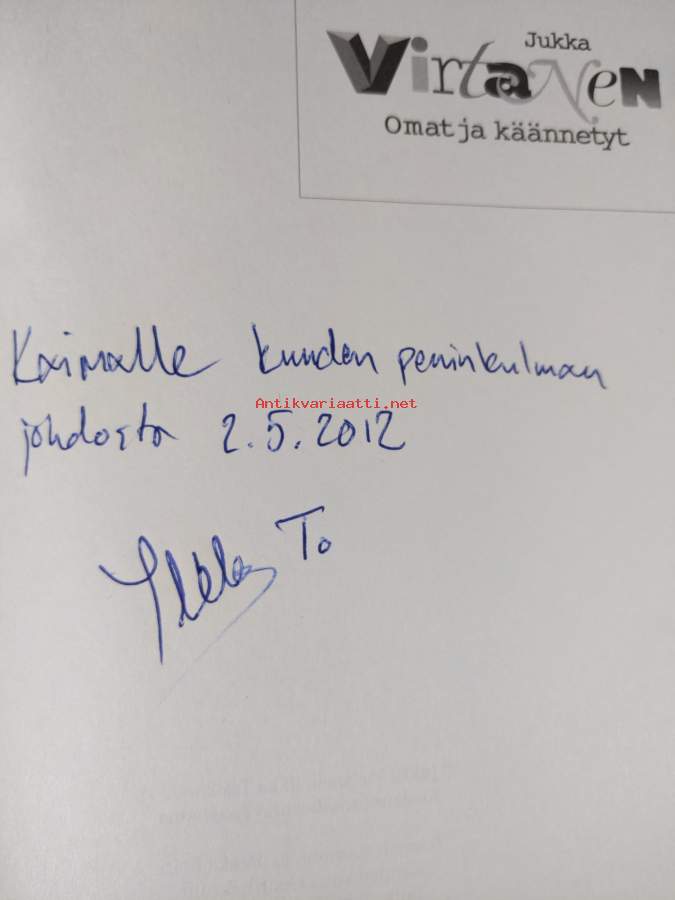 Jukka
Virtanen
Omat ja käännetyt
Kaimalle kuuden peninkulman
Antikvariaatti.net
johdosta 2.5.2012
Ilkka To